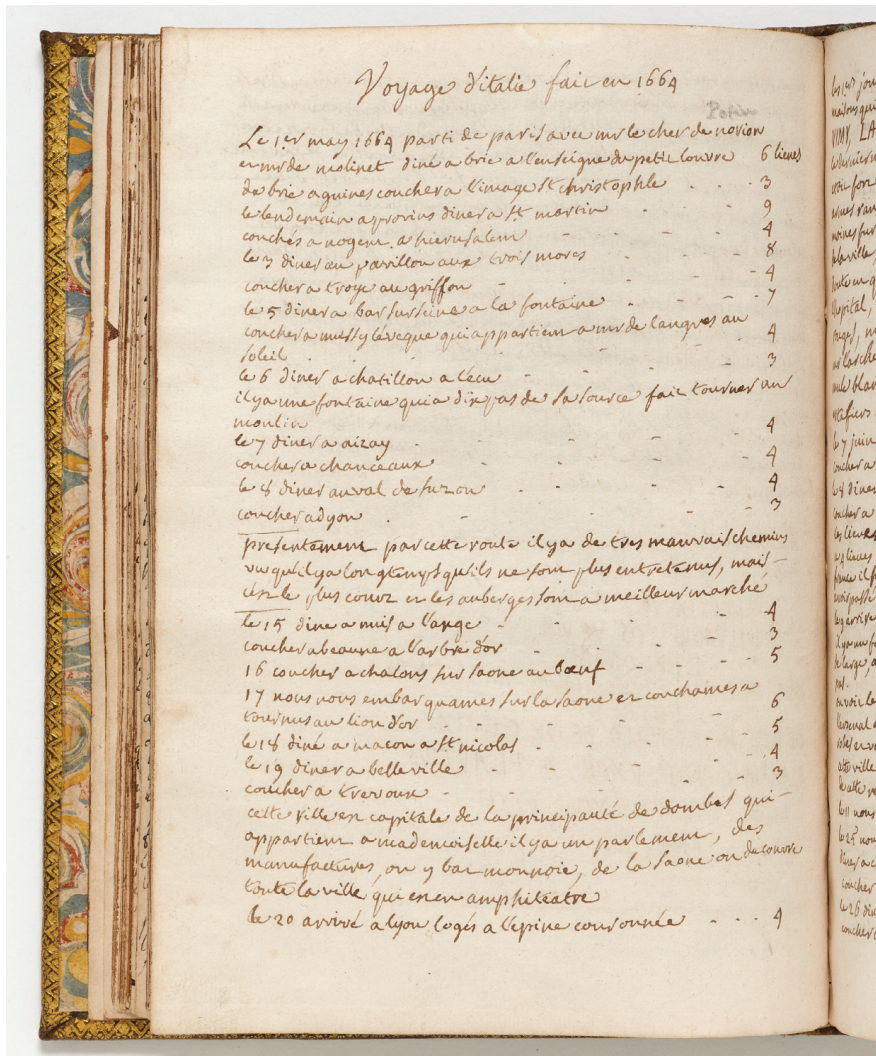 Voyage d'italie fait en 1664
Potin
Le 1er may 1664 parti de paris avec mr le cher de novion
et mr de molinet diné a brie a l'enseigne du petit louvre 6 lieues
de brie a guines coucher a l'image st christophle . . . 3
le lendemain a provins diner a st martin . . 9
couchés a nogent, a hierusalem . . . 4
le 3 diner au pavillon aux trois mores . . . 8
coucher a troye au griffon . . . 4
le 5 diner a bar sur seine a la fontaine . . . 7
coucher a mussy lévêque qui appartient a mr de langres au
soleil . . . 4
le 6 diner a chatillon a l'écu . . . 3
il y a une fontaine qui a dix pas de sa source fait tourner un
moulin
le 7 diner a aizay . . . 4
coucher a chanceaux . . . 4
le 8 diner au val de suzon . . . 4
coucher a dyon . . . 3
presentement par cette route il y a de tres mauvais chemins
vu qu'il y a longtemps qu'ils ne sont plus entretenus, mais -
c'est le plus court et les auberges sont a meilleur marché
le 15 dine a nuis a l'ange . . . 4
coucher a beaune a l'arbre d'or . . . 3
16 coucher a chalons sur saone au bœuf . . . 5
17 nous nous embarquames sur la saone et couchames a
tournus au lion d'or . . . 6
le 18 diné a macon a st nicolas . . . 5
le 19 diner a belleville . . . 4
coucher a trevoux . . . 3
cette ville est capitale de la principauté de dombes qui -
appartient a mademoiselle il y a un parlement, des
manufactures, on y bat monnoie, de la saone on decouvre
toute la ville qui est en amphiteatre
le 20 arrivé a lyon logés a l'epine couronnée . . . 4